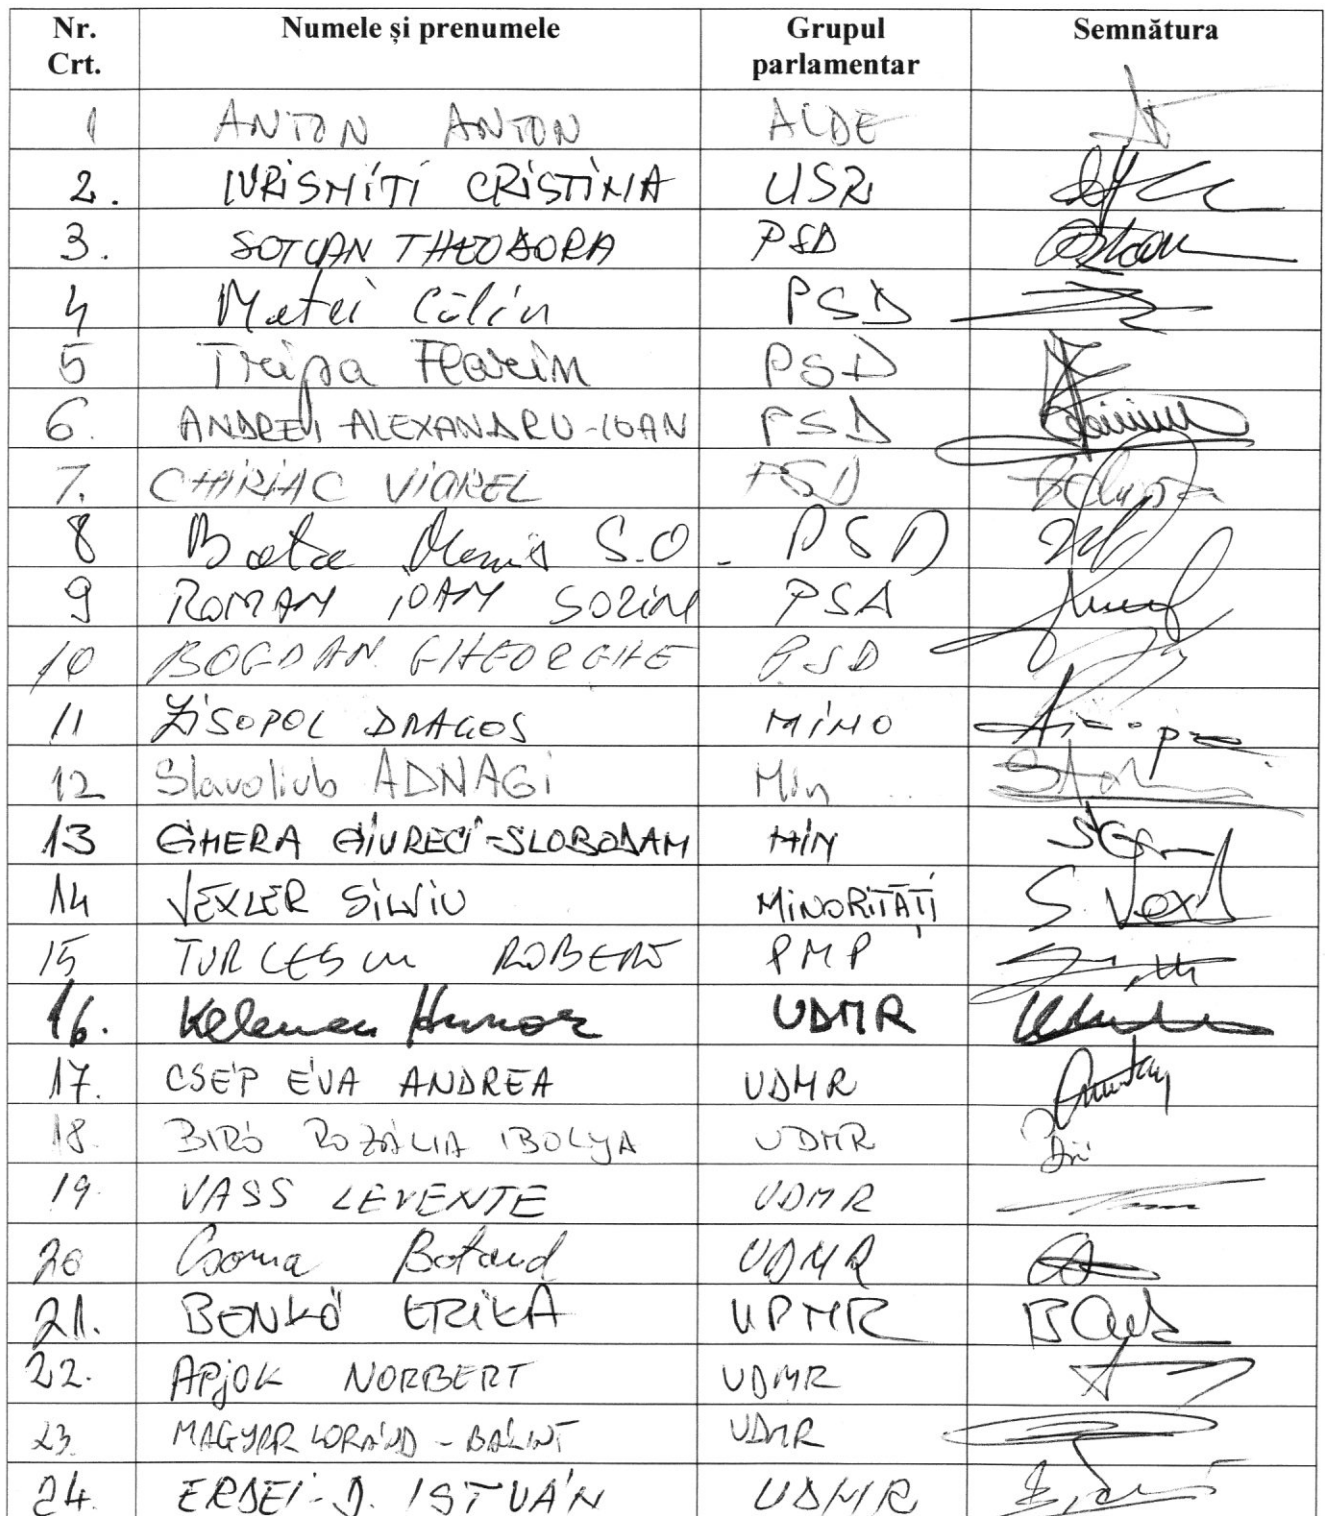 Nr. Crt. Numele și prenumele Grupul parlamentar Semnătura
1 ANTON ANTON ALDE
2. IURISNIȚI CRISTINA USR
3. SOTCAN THEODORA PSD
4 Matei Călin PSD
5 Tripa Florin PSD
6. ANDREI ALEXANDRU-IOAN PSD
7. CHIRIAC VIOREL PSD
8 S.O. PSD
9 ROMAN IOAN SORIN PSD
10 BOGDAN GHEORGHE PSD
11 ZISOPOL DRAGOS MINO
12 Slavoliub ADNAGI Min
13 GHERA GIURECI-SLOBODAN MIN
14 VEXLER SILVIU MINORITĂȚI S. Vexl
15 TURCESCU ROBERT PMP
16. Kelemen Hunor UDMR
17. CSÉP ÉVA ANDREA UDMR
18. BIRÓ ROZÁLIA IBOLYA UDMR
19. VASS LEVENTE UDMR
20 Csoma Botond UDMR
21. BENKŐ ERIKA UDMR
22. APJOK NORBERT UDMR
23. MAGYAR LORÁND - BÁLINT UDMR
24. ERDEI-D. ISTVÁN UDMR